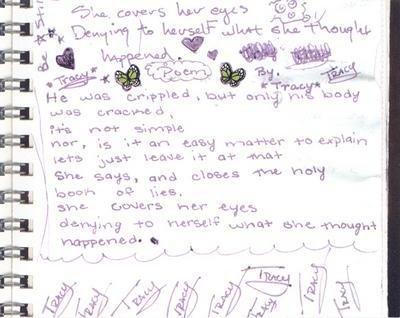 She covers her eyes
Denying to herself what she thought
happened.
Poem
By.
*Tracy*
TRACY
*Tracy*
He was crippled, but only his body
was cracked,
it's not simple
nor, is it an easy matter to explain
lets just leave it at that
she says, and closes the holy
book of lies.
she covers her eyes
denying to herself what she thought
happened.
TRACY TRACY TRACY TRACY TRACY TRACY TRACY TRACY TRACY